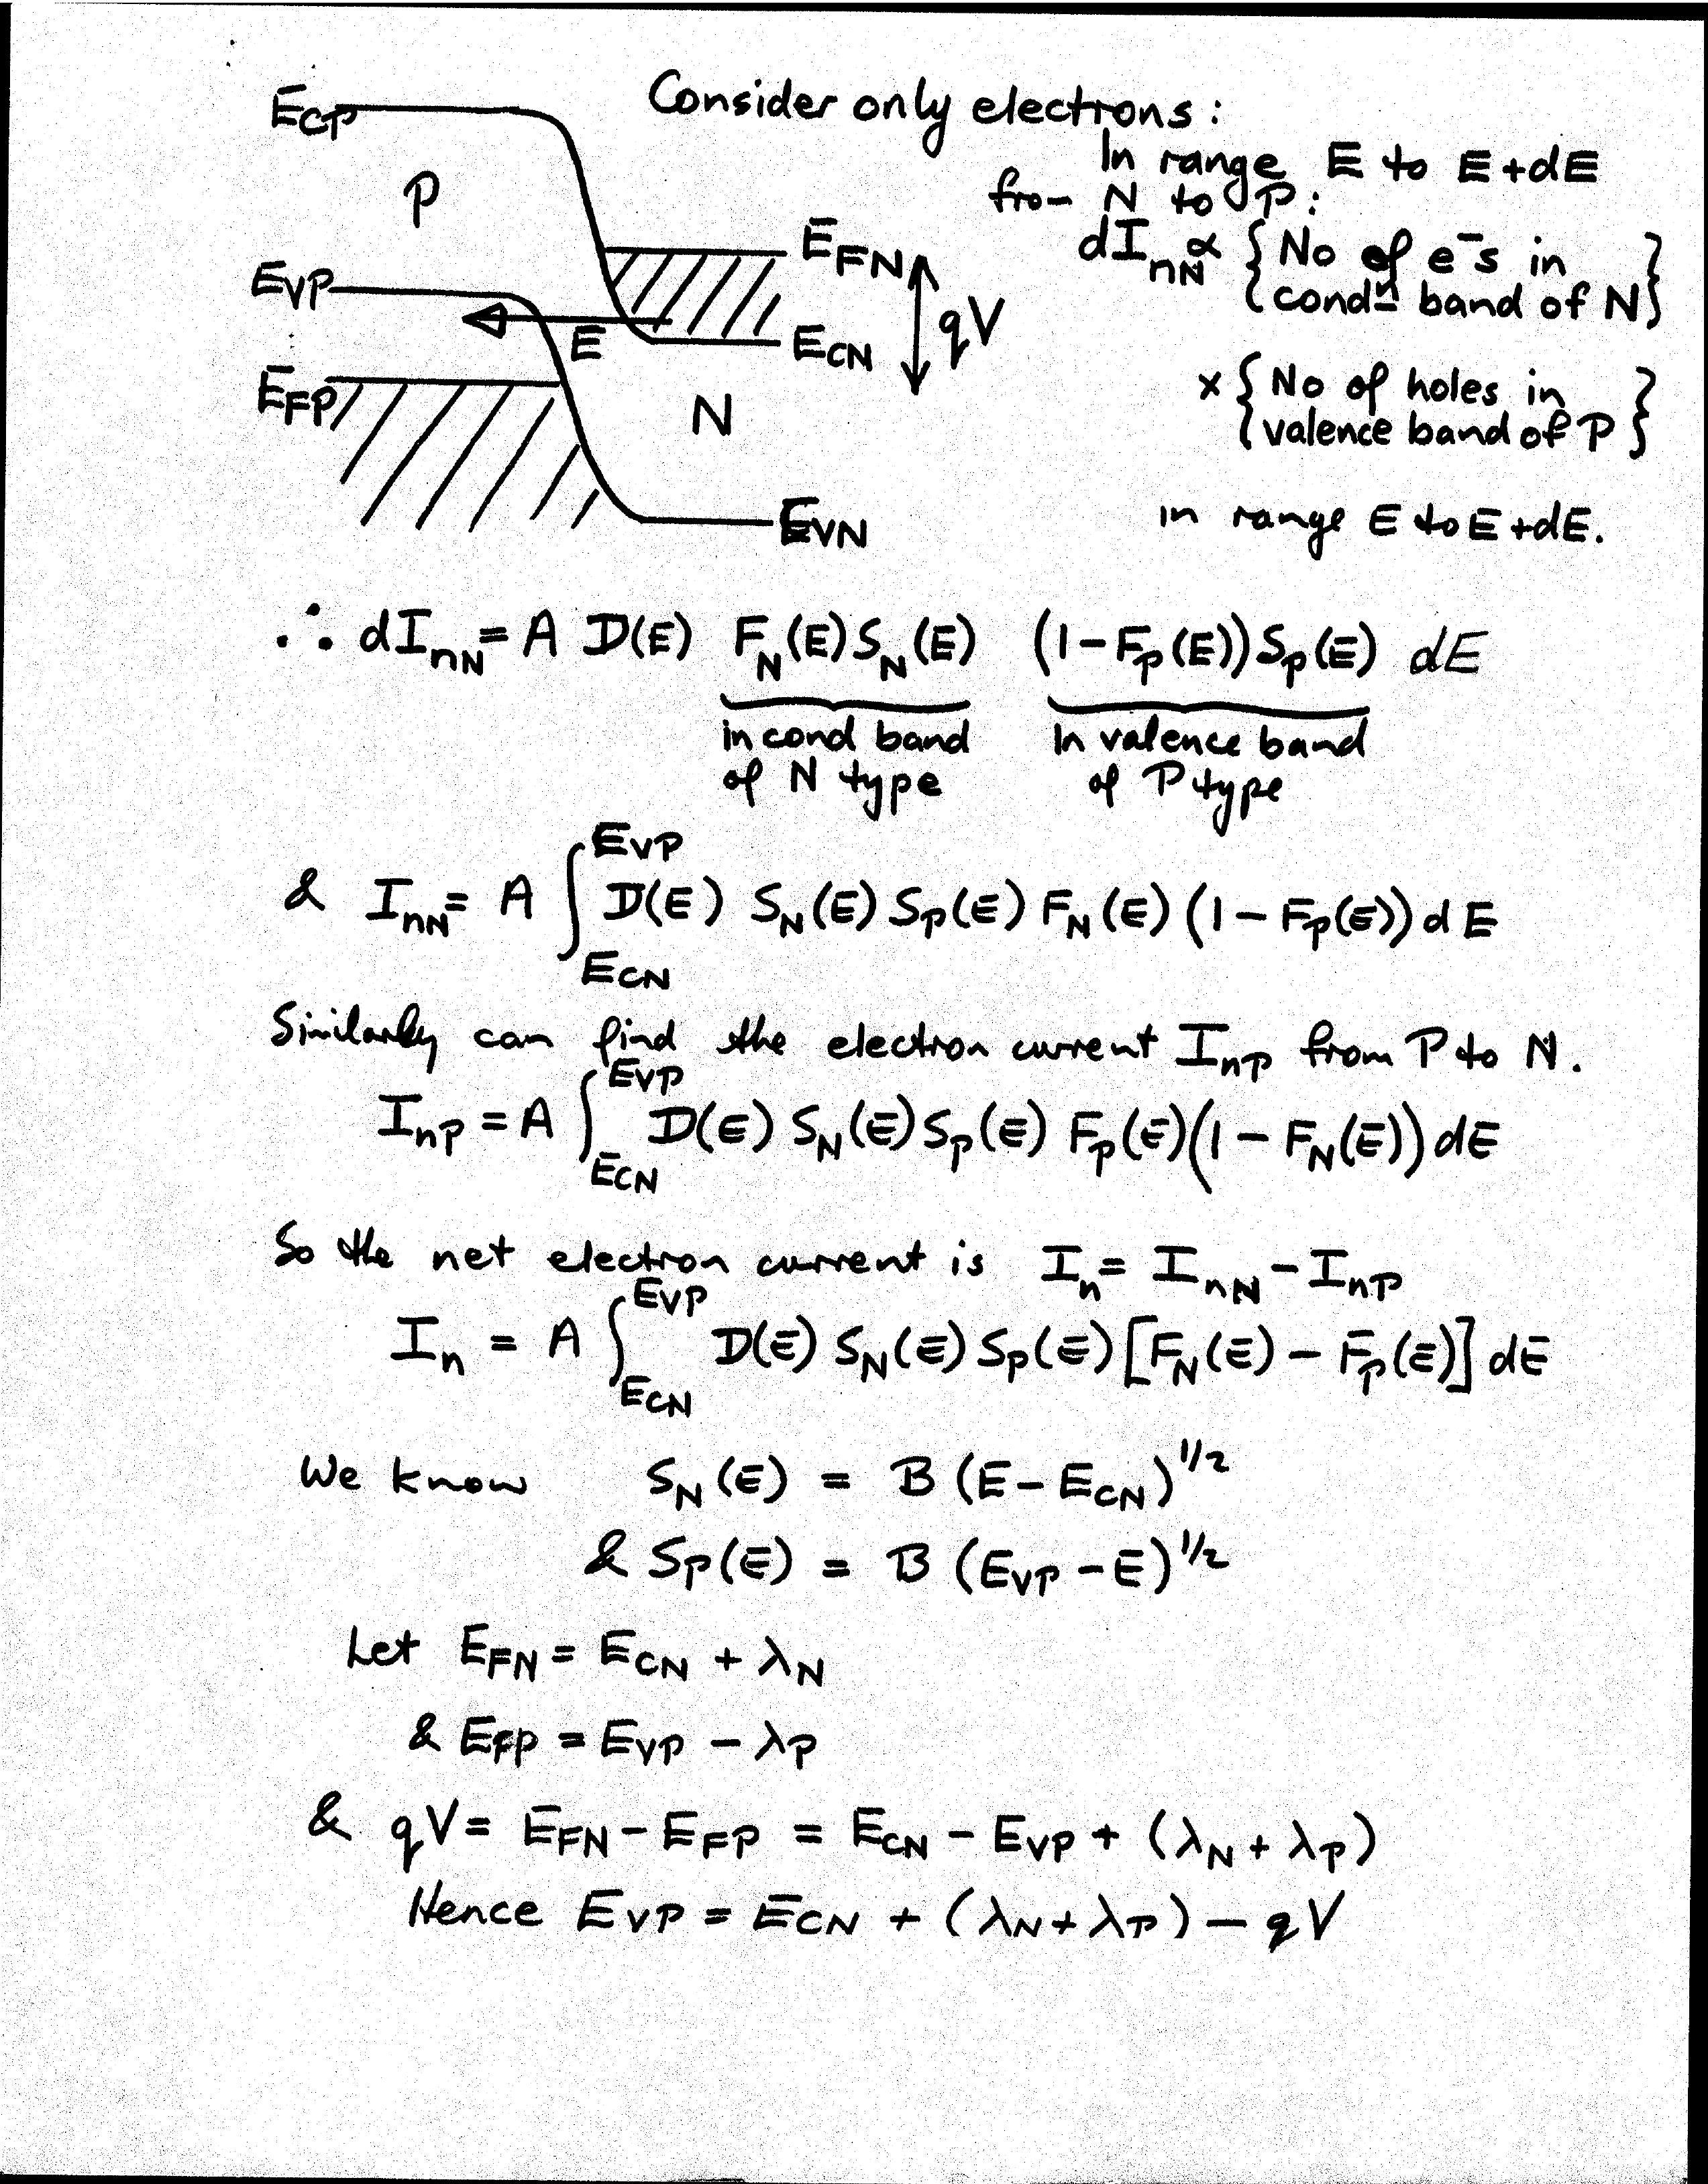 Consider only electrons :
In range E to E+dE
fro- N to P:
dI_nN ∝ { No of e⁻s in
cond<u>n</u> band of N }
x { No of holes in
valence band of P }
in range E to E+dE.
E_CP
P
E_VP
E_FP
E
E_FN
qV
E_CN
N
E_VN
∴ dI_nN = A D(E) F_N(E) S_N(E) (1-F_P(E)) S_P(E) dE
in cond band In valence band
of N type of P type
& I_nN = A ∫_{E_CN}^{E_VP} D(E) S_N(E) S_P(E) F_N(E) (1 - F_P(E)) dE
Similarly can find the electron current I_nP from P to N.
I_nP = A ∫_{E_CN}^{E_VP} D(E) S_N(E) S_P(E) F_P(E) (1 - F_N(E)) dE
So the net electron current is I_n = I_nN - I_nP
I_n = A ∫_{E_CN}^{E_VP} D(E) S_N(E) S_P(E) [F_N(E) - F_P(E)] dE
We know S_N(E) = B (E - E_CN)^{1/2}
& S_P(E) = B (E_VP - E)^{1/2}
Let E_FN = E_CN + λ_N
& E_FP = E_VP - λ_P
& qV = E_FN - E_FP = E_CN - E_VP + (λ_N + λ_P)
Hence E_VP = E_CN + (λ_N + λ_P) - qV